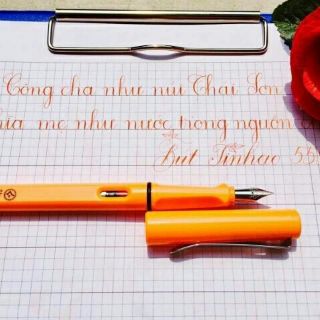 Công cha như núi Thái Sơn
nghĩa mẹ như nước trong nguồn
Bút Tinhac 55